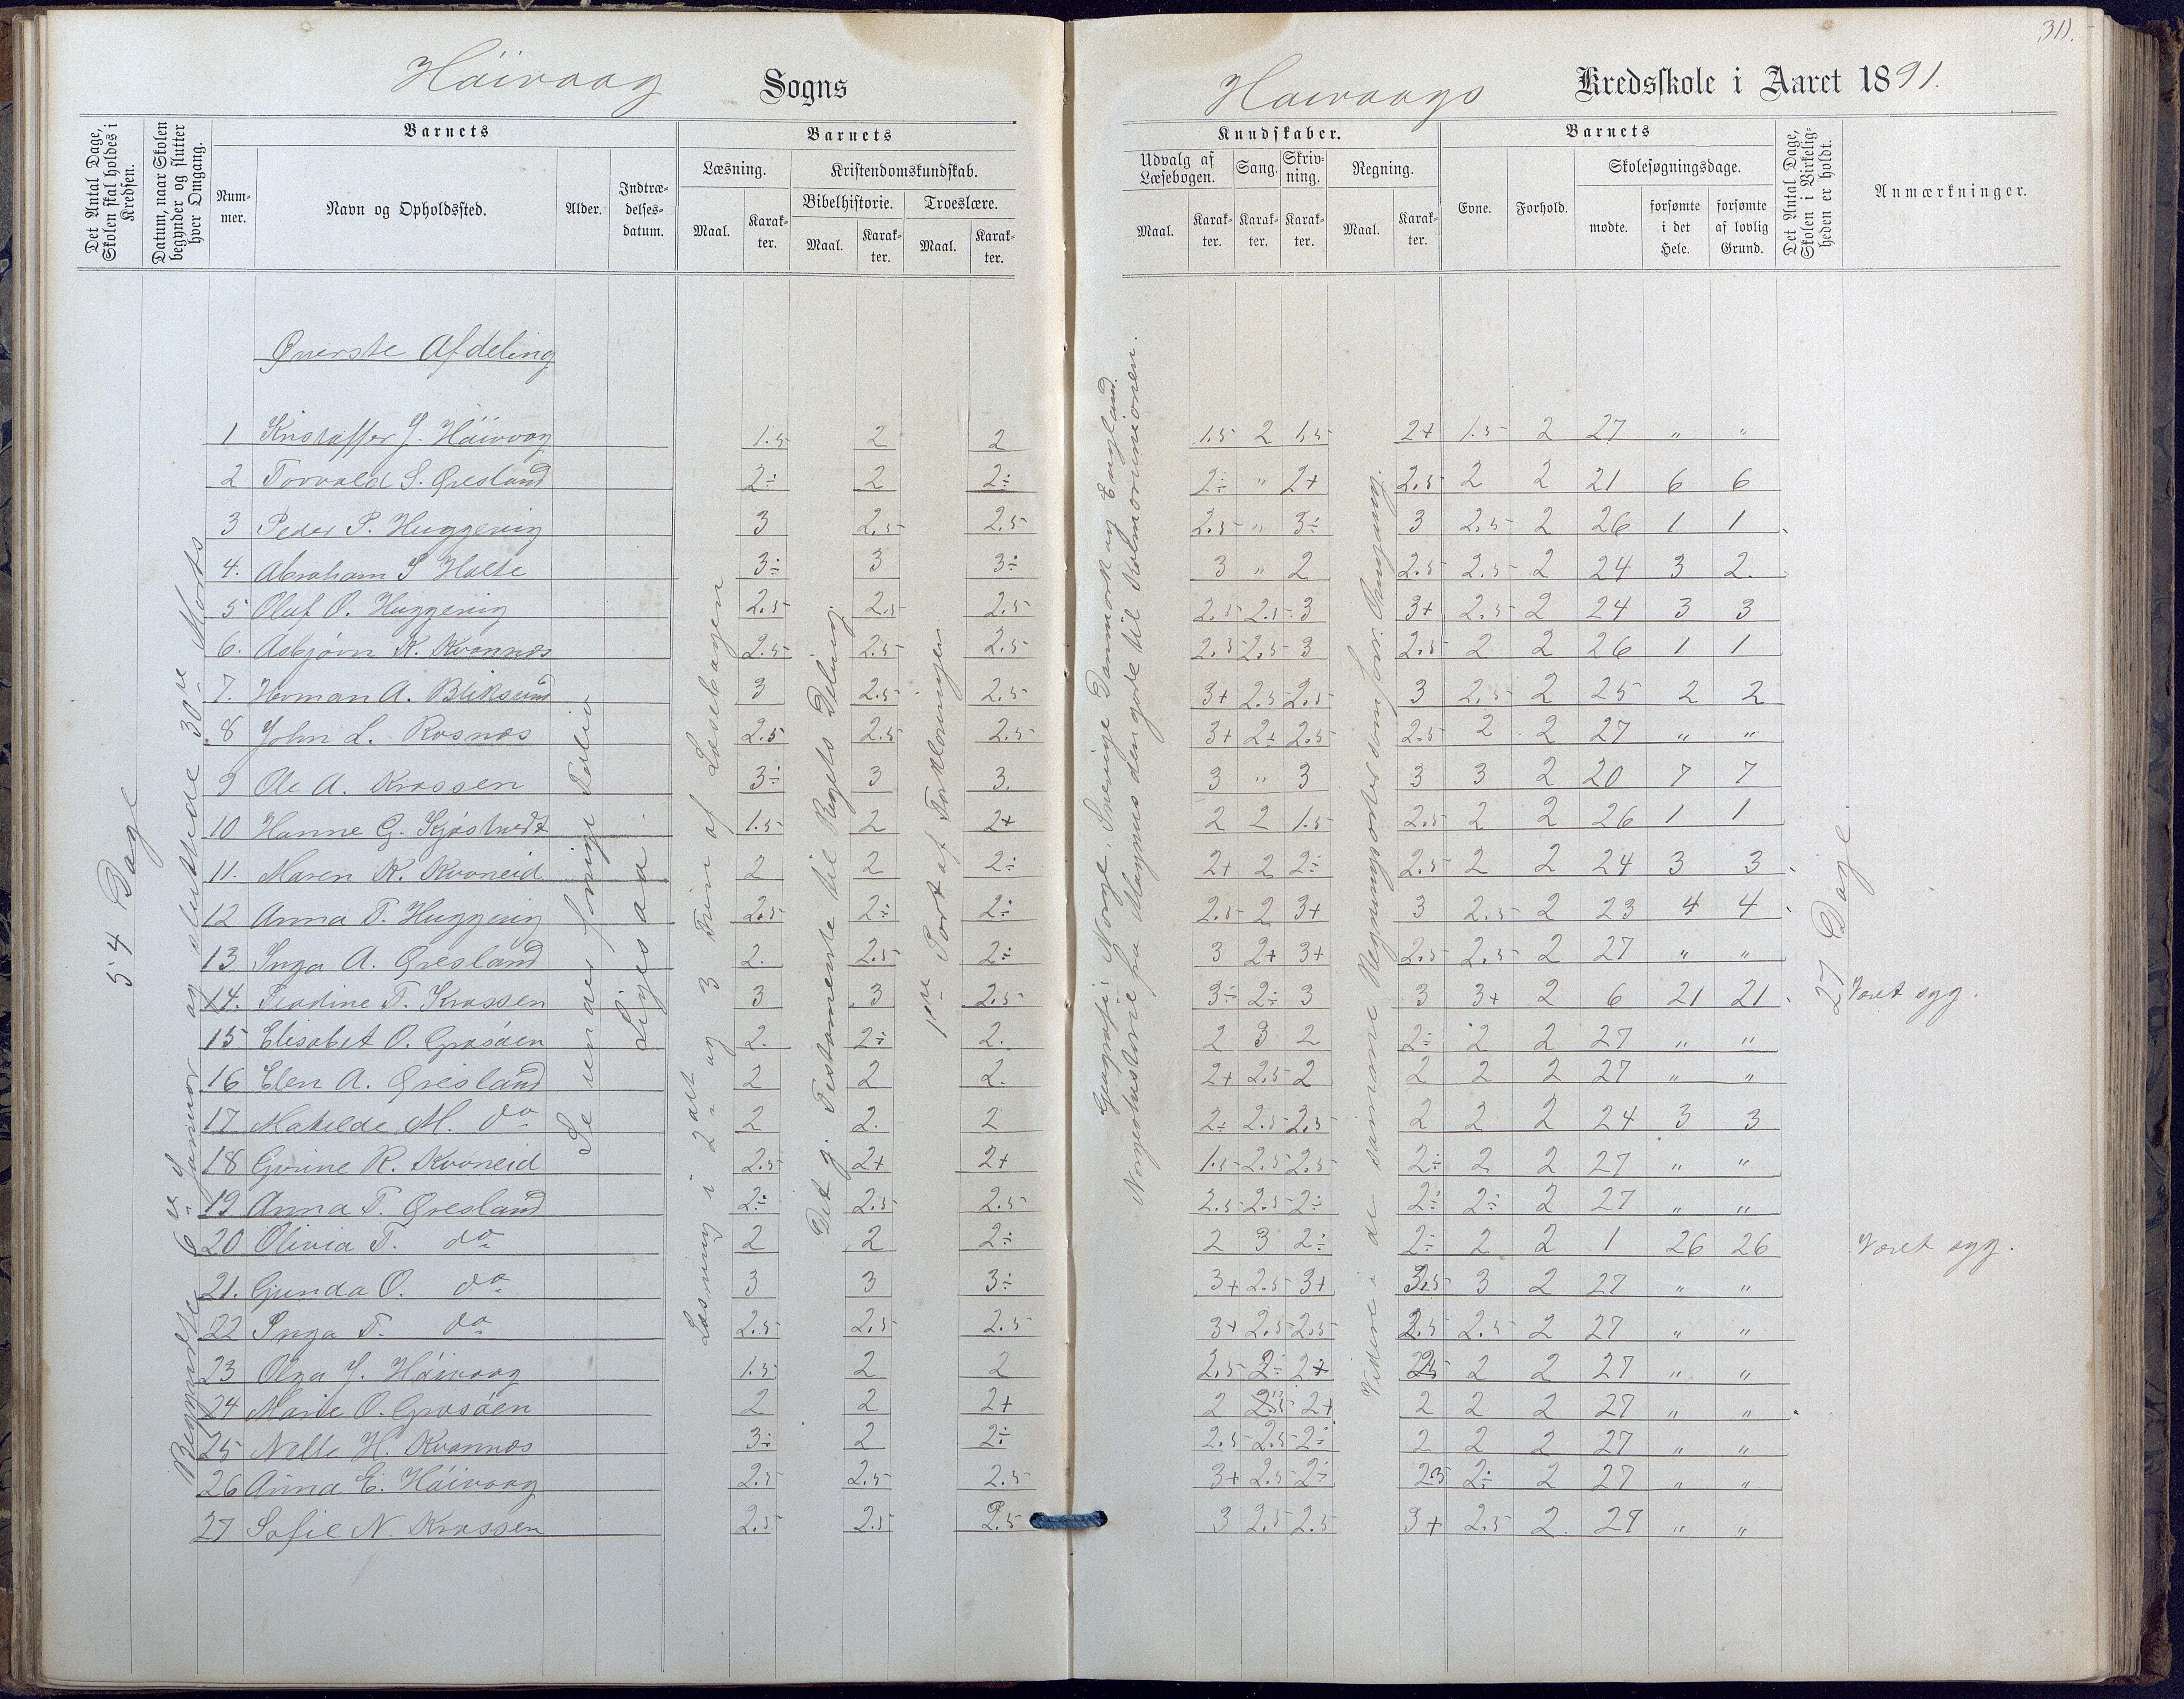 Håivaag Sogns
Haivaags Kredsskole i Aaret 1891.
311.
Det Antal Dage, Skolen skal holdes i Kredsen.
Datum, naar Skolen begynder og slutter hver Omgang.
Barnets
Num-mer.
Navn og Opholdssted.
Alder.
Indtræ-delses-datum.
Barnets
Læsning.
Maal.
Karak-ter.
Kristendomskundskab.
Bibelhistorie.
Maal.
Karak-ter.
Troeslære.
Maal.
Karak-ter.
Kundskaber.
Udvalg af Læsebogen.
Maal.
Karak-ter.
Sang.
Karak-ter.
Skriv-ning.
Karak-ter.
Regning.
Maal.
Karak-ter.
Barnets
Evne.
Forhold.
Skolesøgningsdage.
mødte.
forsømte i det Hele.
forsømte af lovlig Grund.
Det Antal Dage, Skolen i Virkelig-heden er holdt.
Anmærkninger.
54 Dage
Begyndte 6te Januar og sluttede 30te Marts
Øverste Afdeling
Se venaes forrige Folio
Liges aa
Læsning i 2det og 3 Trin af Læsebogen
Det g. Testamente til Rigets Deling.
1ste Part af Forklaringen
Geografi: Norge, Sverige Danmark og England.
Norgeshistorie fra Magnus den gode til Kalmarunionen.
Videre i de samme Regningsarter som forr. Omgang.
27 Dage
1 Kristoffer J. Håivaag 1.5 2 2 1.5 2 1.5 2+ 1.5 2 27 " "
2 Torvald S. Øresland 2÷ 2 2÷ 2÷ " 2+ 2.5 2 2 21 6 6
3 Peder P. Huggevig 3 2.5 2.5 2.5 " 3÷ 3 2.5 2 26 1 1
4. Abraham S Holte 3÷ 3 3÷ 3 " 2 2.5 2.5 2 24 3 2.
5 Oluf O. Huggevig 2.5 2.5 2.5 2.5 2.5 3 3+ 2.5 2 24 3 3
6. Asbjørn K. Kvannes 2.5 2.5 2.5 2.5 2.5 3 2.5 2 2 26 1 1
7. Herman A. Bliksund 3 2.5 2.5 3+ 2.5 2.5 3 2.5 2 25 2 2
8 John L. Rosnæs 2.5 2.5 2.5 3+ 2÷ 2.5 2.5 2 2 27 " "
9 Ole A. Krossen 3÷ 3 3. 3 " 3 3 3 2 20 7 7
10 Hanne G. Kjøstvedt 1.5 2 2+ 2 2 1.5 2.5 2 2 26 1 1
11. Maren K. Kvoneid 2 2 2÷ 2+ 2 2÷ 2.5 2 2 24 3 3
12 Anna T. Huggevig 2.5 2÷ 2÷ 2.5 2 3+ 3 2.5 2 23 4 4
13 Inga A. Øresland 2. 2.5 2÷ 3 2+ 3+ 2.5 2.5 2 27 " "
14. Teodine T. Krossen 3 3 2.5 3÷ 2÷ 3 3 3+ 2 6 21 21 Været syg.
15 Elisabet O. Grosåen 2. 2÷ 2. 2 3 2 2÷ 2 2 27 " "
16 Elen A. Øresland 2 2 2. 2+ 2.5 2 2 2 2 27 " "
17 Matelde M. do 2 2. 2 2÷ 2.5 2.5 2 2 2 24 3 3
18 Gurine R. Kvoneid 2.5 2+ 2+ 1.5 2.5 2.5 2÷ 2 2 27 " "
19 Anna T. Øresland 2÷ 2.5 2.5 2.5 2.5 2÷ 2÷ 2÷ 2 27 " "
20 Olivia T. do 2 2 2÷ 2 3 2÷ 2÷ 2 2 1 26 26 Været syg.
21. Gunda O. do 3 3 3÷ 3+ 2.5 3+ 3.5 3 2 27 " "
22 Inga T. do 2.5 2.5 2.5 3+ 2.5 2.5 2.5 2.5 2 27 " "
23 Olga J. Håivaag 1.5 2 2 2.5 2÷ 2+ 2.5 2 2 27 " "
24 Marie O. Grosåen 2 2 2+ 2 2.5 2+ 2 2 2 27 " "
25 Nille H. Kvannes 3÷ 2 2÷ 2.5 2.5 2÷ 2 2 2 27 " "
26 Anna E. Håivaag 2.5 2.5 2.5 3+ 2.5 2÷ 2.5 2÷ 2 27 " "
27 Sofie N. Krossen 2.5 2.5 2.5 3 2.5 2.5 3+ 2.5 2. 27 " "